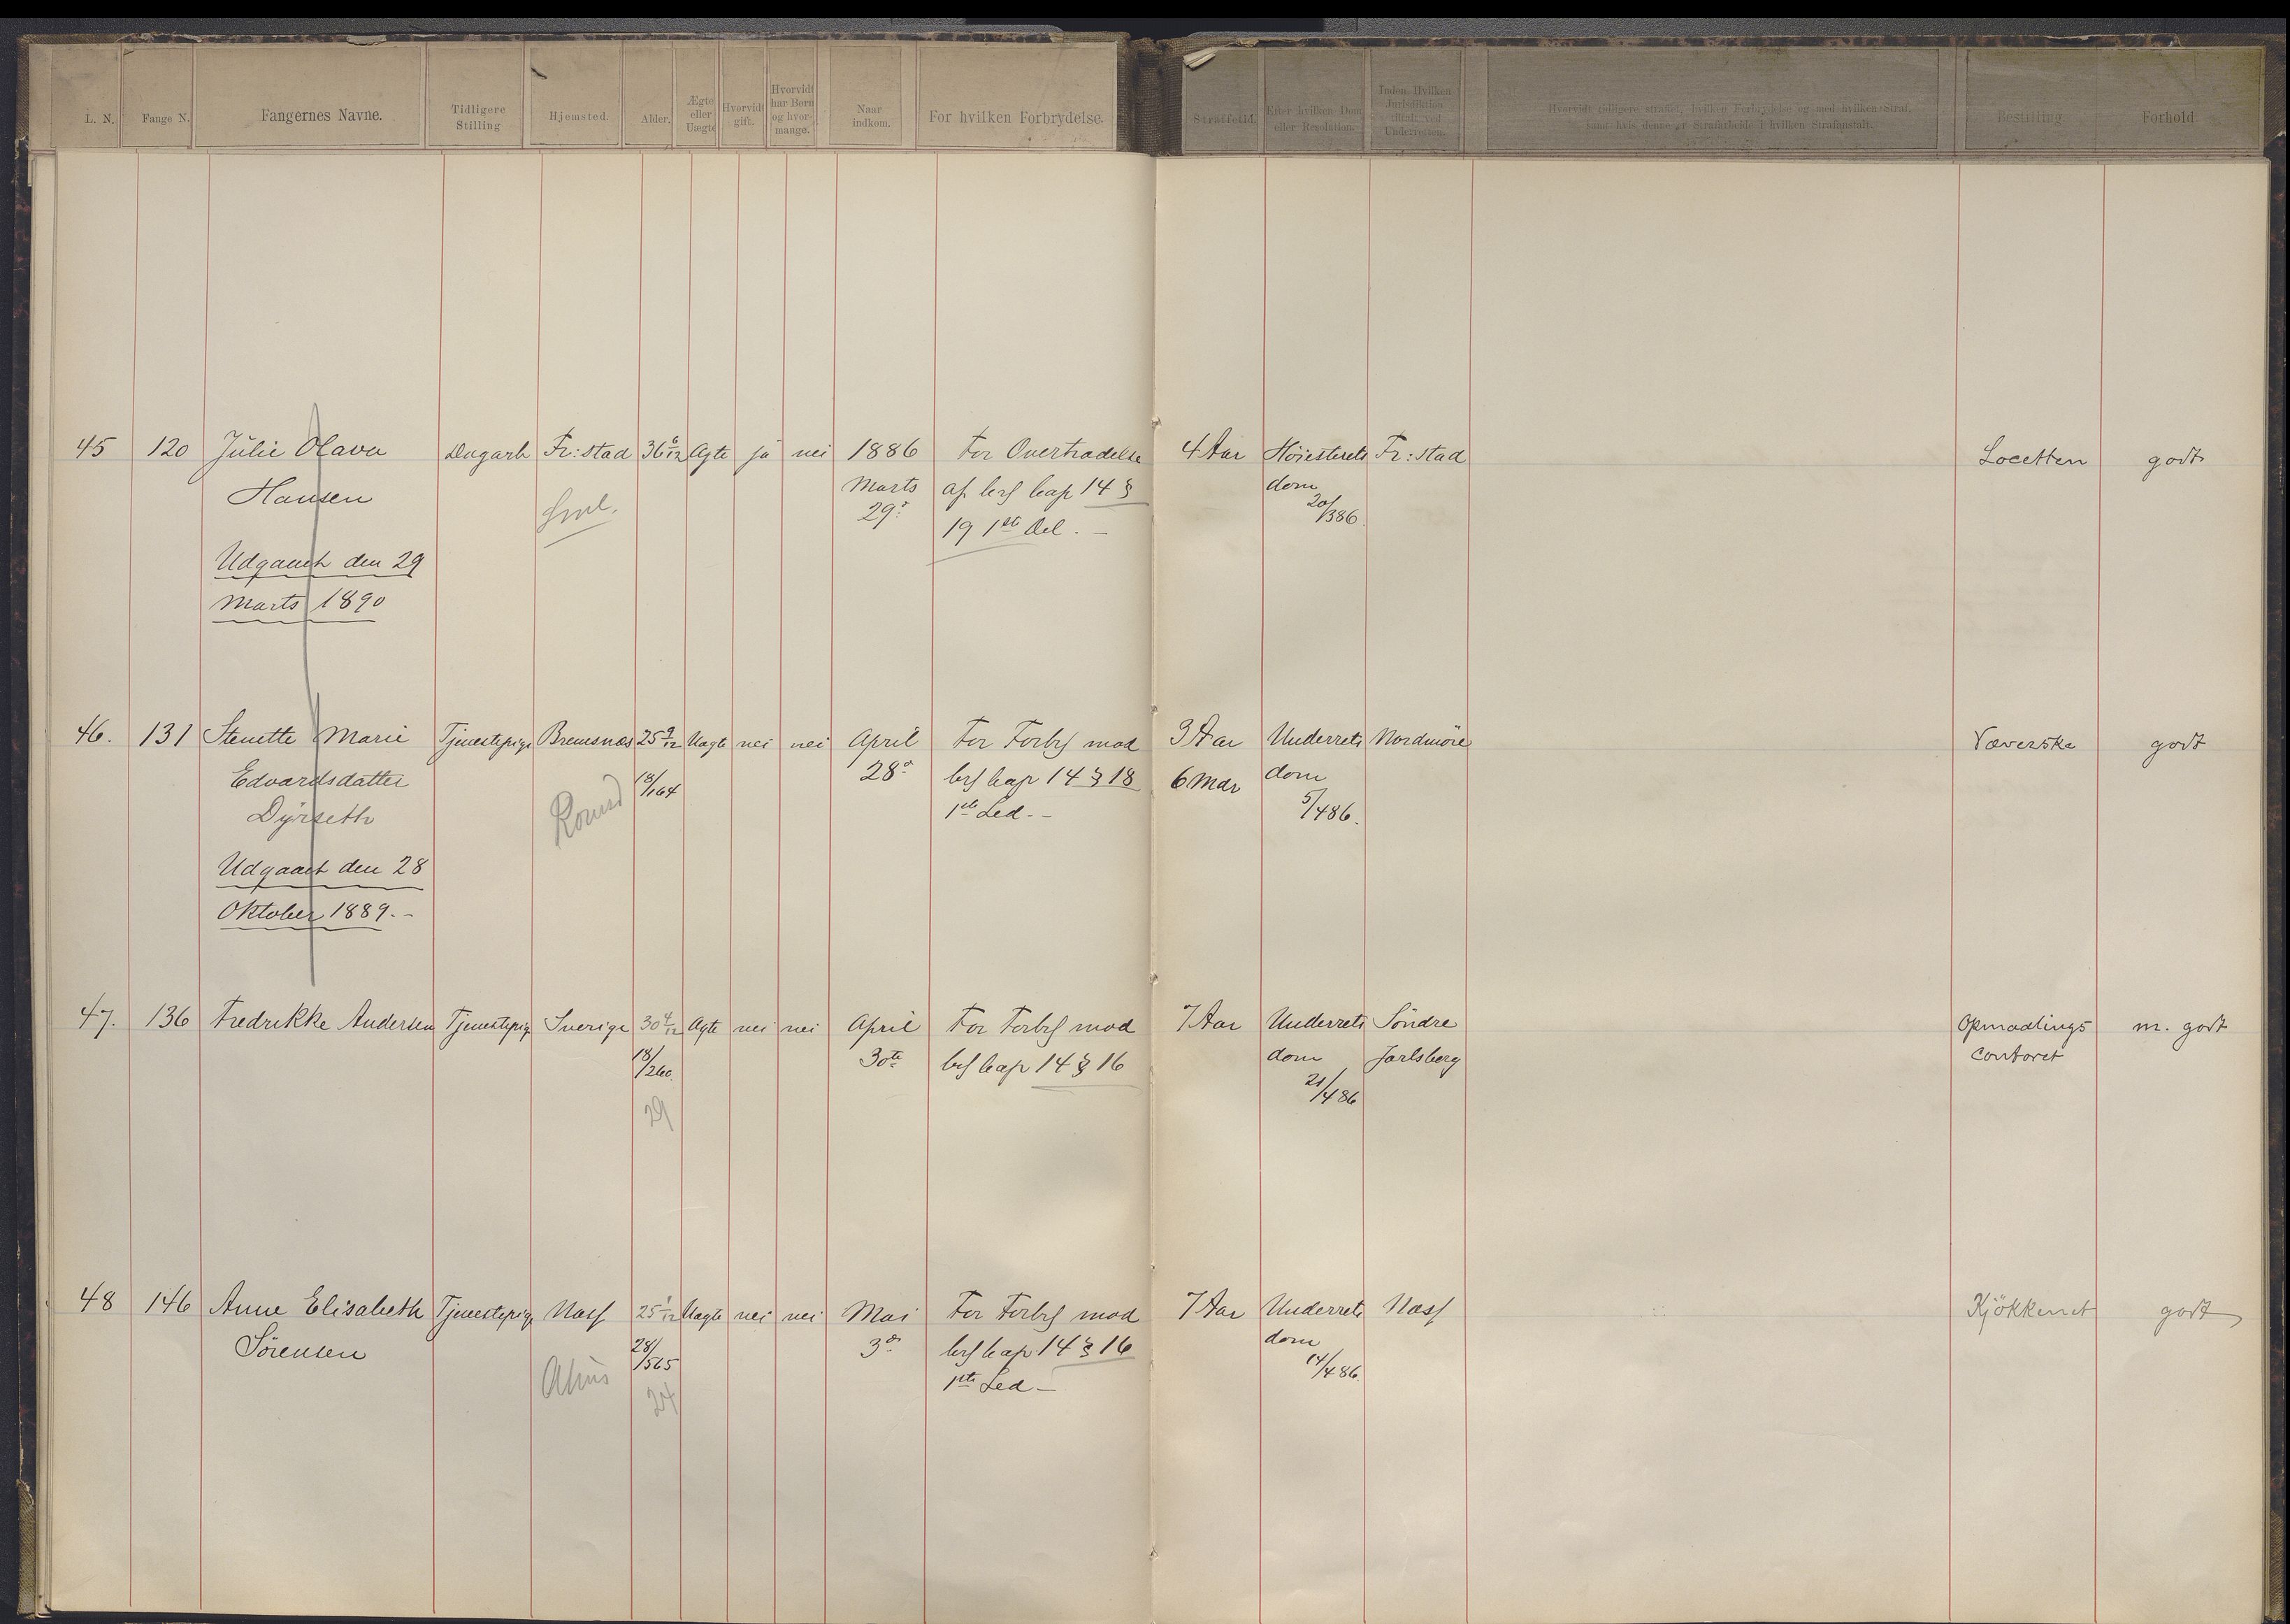 L. N.
Fange N.
Fangernes Navne.
Tidligere
Stilling
Hjemsted.
Alder.
Ægte
eller
Uægte
Hvorvidt
gift.
Hvorvidt
har Børn
og hvor-
mange.
Naar
indkom.
For hvilken Forbrydelse.
Straffetid.
Efter hvilken Dom
eller Resolution.
Inden Hvilken
Jurisdiktion
ved
Underretten.
Hvorvidt tidligere straffet, hvilken Forbrydelse og med hvilken Straf,
samt hvis denne er Strafarbeide i hvilken Strafanstalt.
Bestilling
Forhold
45 120 Julie Olava Dagarb Fr: stad 36 6/12 Ægte ja nei 1886 For Overtrædelse 4 Aar Høiesterets Fr: stad godt
Hansen Marts af Cap 14 § dom
Sml. 29 20/3 86
19 1ste Del. -
Udgaaet den 29
Marts 1890
46. 131 Stenette Marie Tjenestepige Bremsnæs 25 9/12 Uægte nei nei April For Forbr mod 3 Aar Underrets Nordmøre Væverske godt
Edvardsdatter 18/1 64 28 Cap 14 § 18 6 Mdr dom
Dyrseth Romsd 1ste Led. - 5/4 86.
Udgaaet den 28
Oktober 1889. -
47. 136 Fredrikke Andersen Tjenestepige Sverige 30 4/12 Ægte nei nei April For Forbr mod 7 Aar Underrets Söndre Opmadlings m. godt
18/2 60. 30te Cap 14 § 16 dom Jarlsberg Contoret
29 21/4 86
48 146 Anne Elisabeth Tjenestepige Næss 25 1/12 Uægte nei nei Mai For Forbr mod 7 Aar Underrets Næss Kjökkenet godt
Sörensen 28/5 65 3 Cap 14 § 16 dom
Ahus 24 1ste Led - 14/4 86.